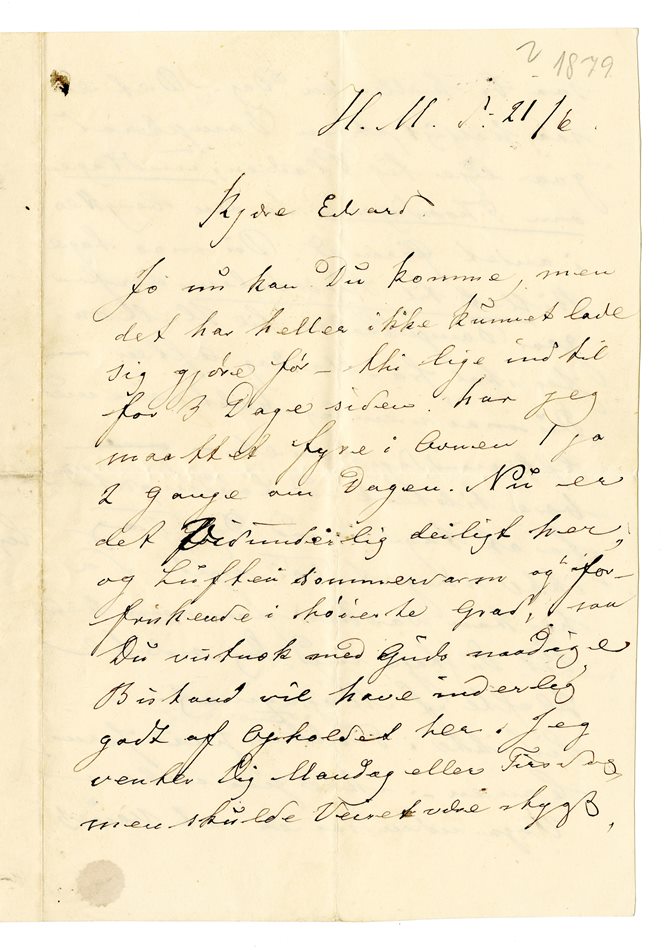 2 1879
H. M. d. 21/6.
Kjære Edvard.
Jo nu kan Du komme, men
det har heller ikke kunnet lade
sig gjøre før – thi lige indtil
for 3 Dage siden har jeg
maattet fyre i Ovnen 1 ja
2 Gange om Dagen. Nu er
det vidunderlig deiligt her,
og Luften sommervarm og for-
friskende i høieste Grad, saa
Du vistnok med Guds naadige
Bistand vil have inderlig
godt af Opholdet her. Jeg
venter Dig Mandag eller Tirsdag,
men skulde Veiret være stygt,